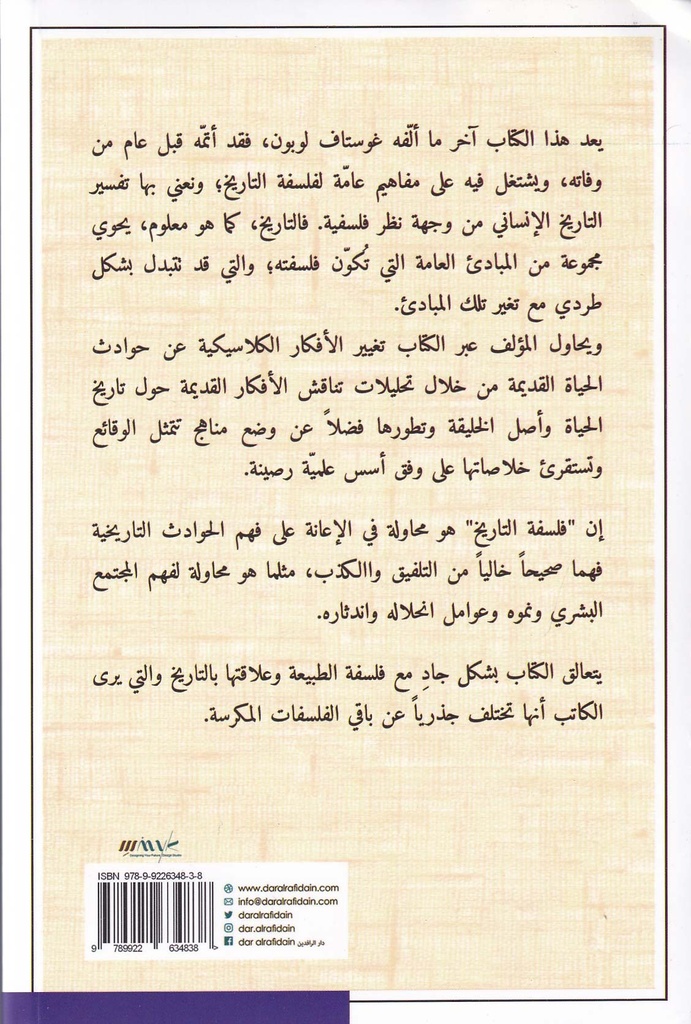 يعد هذا الكتاب آخر ما ألّفه غوستاف لوبون، فقد أتمّه قبل عام من
وفاته، ويشتغل فيه على مفاهيم عامّة لفلسفة التاريخ؛ ونعني بها تفسير
التاريخ الإنساني من وجهة نظر فلسفية. فالتاريخ، كما هو معلوم، يحوي
مجموعة من المبادئ العامة التي تُكوّن فلسفته؛ والتي قد تتبدل بشكل
طردي مع تغير تلك المبادئ.
ويحاول المؤلف عبر الكتاب تغيير الأفكار الكلاسيكية عن حوادث
الحياة القديمة من خلال تحليلات تناقش الأفكار القديمة حول تاريخ
الحياة وأصل الخليقة وتطورها فضلاً عن وضع مناهج تتمثل الوقائع
وتستقرئ خلاصاتها على وفق أسس علميّة رصينة.
إن "فلسفة التاريخ" هو محاولة في الإعانة على فهم الحوادث التاريخية
فهما صحيحاً خالياً من التلفيق واالكذب، مثلما هو محاولة لفهم المجتمع
البشري ونموه وعوامل انحلاله واندثاره.
يتعالق الكتاب بشكل جادِ مع فلسفة الطبيعة وعلاقتها بالتاريخ والتي يرى
الكاتب أنها تختلف جذرياً عن باقي الفلسفات المكرسة.
ISBN 978-9-9226348-3-8
9 789922 634838 >
www.daralrafidain.com
info@daralrafidain.com
daralrafidain
dar.alrafidain
dar alrafidain دار الرافدين